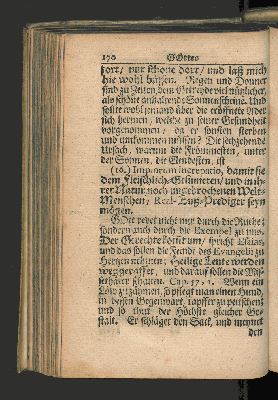 170 GOttes
dort/ nur schone dort/ und laß mich
hie wohl büssen. Regen und Donner
sind zu Zeiten dem Getreyde viel nützlicher,
als schöne anhaltende Sonnenscheine. Und
sollte wohl jemand über die eröffnete Ader
sich hermen, welche zu seiner Gesundheit
vorgenommen/ da er sonsten sterben
und umkommen müssen? Die sechzehende
Ursach, warum die Frömmesten, unter
der Sonnen, die Elendesten, ist
(16.) Impiorum increpatio, damit sie
dem Fleischlich-Gesinneten/ und in ihrer
Natur noch ungebrochenen Welt-
Menschen, Real-Buß-Prediger seyn
mögen.
GOtt redet nicht nur durch die Ruthe/
sondern auch durch die Exempel zu uns.
Der Gerechte kommt um/ spricht Esaias,
und das sollen die Feinde des Evangelii zu
Hertzen nehmen; Heilige Leute werden
weggeraffet, und darauf sollen die
achten. Cap. 57, 1. Wenn ein
Löw zu zähmen, so pflegt man einen Hund,
in dessen Gegenwart, tapffer zu peitschen/
und so thut der Höchste gleicher Ge-
stalt. Er schläget den Sack, und meynet
den